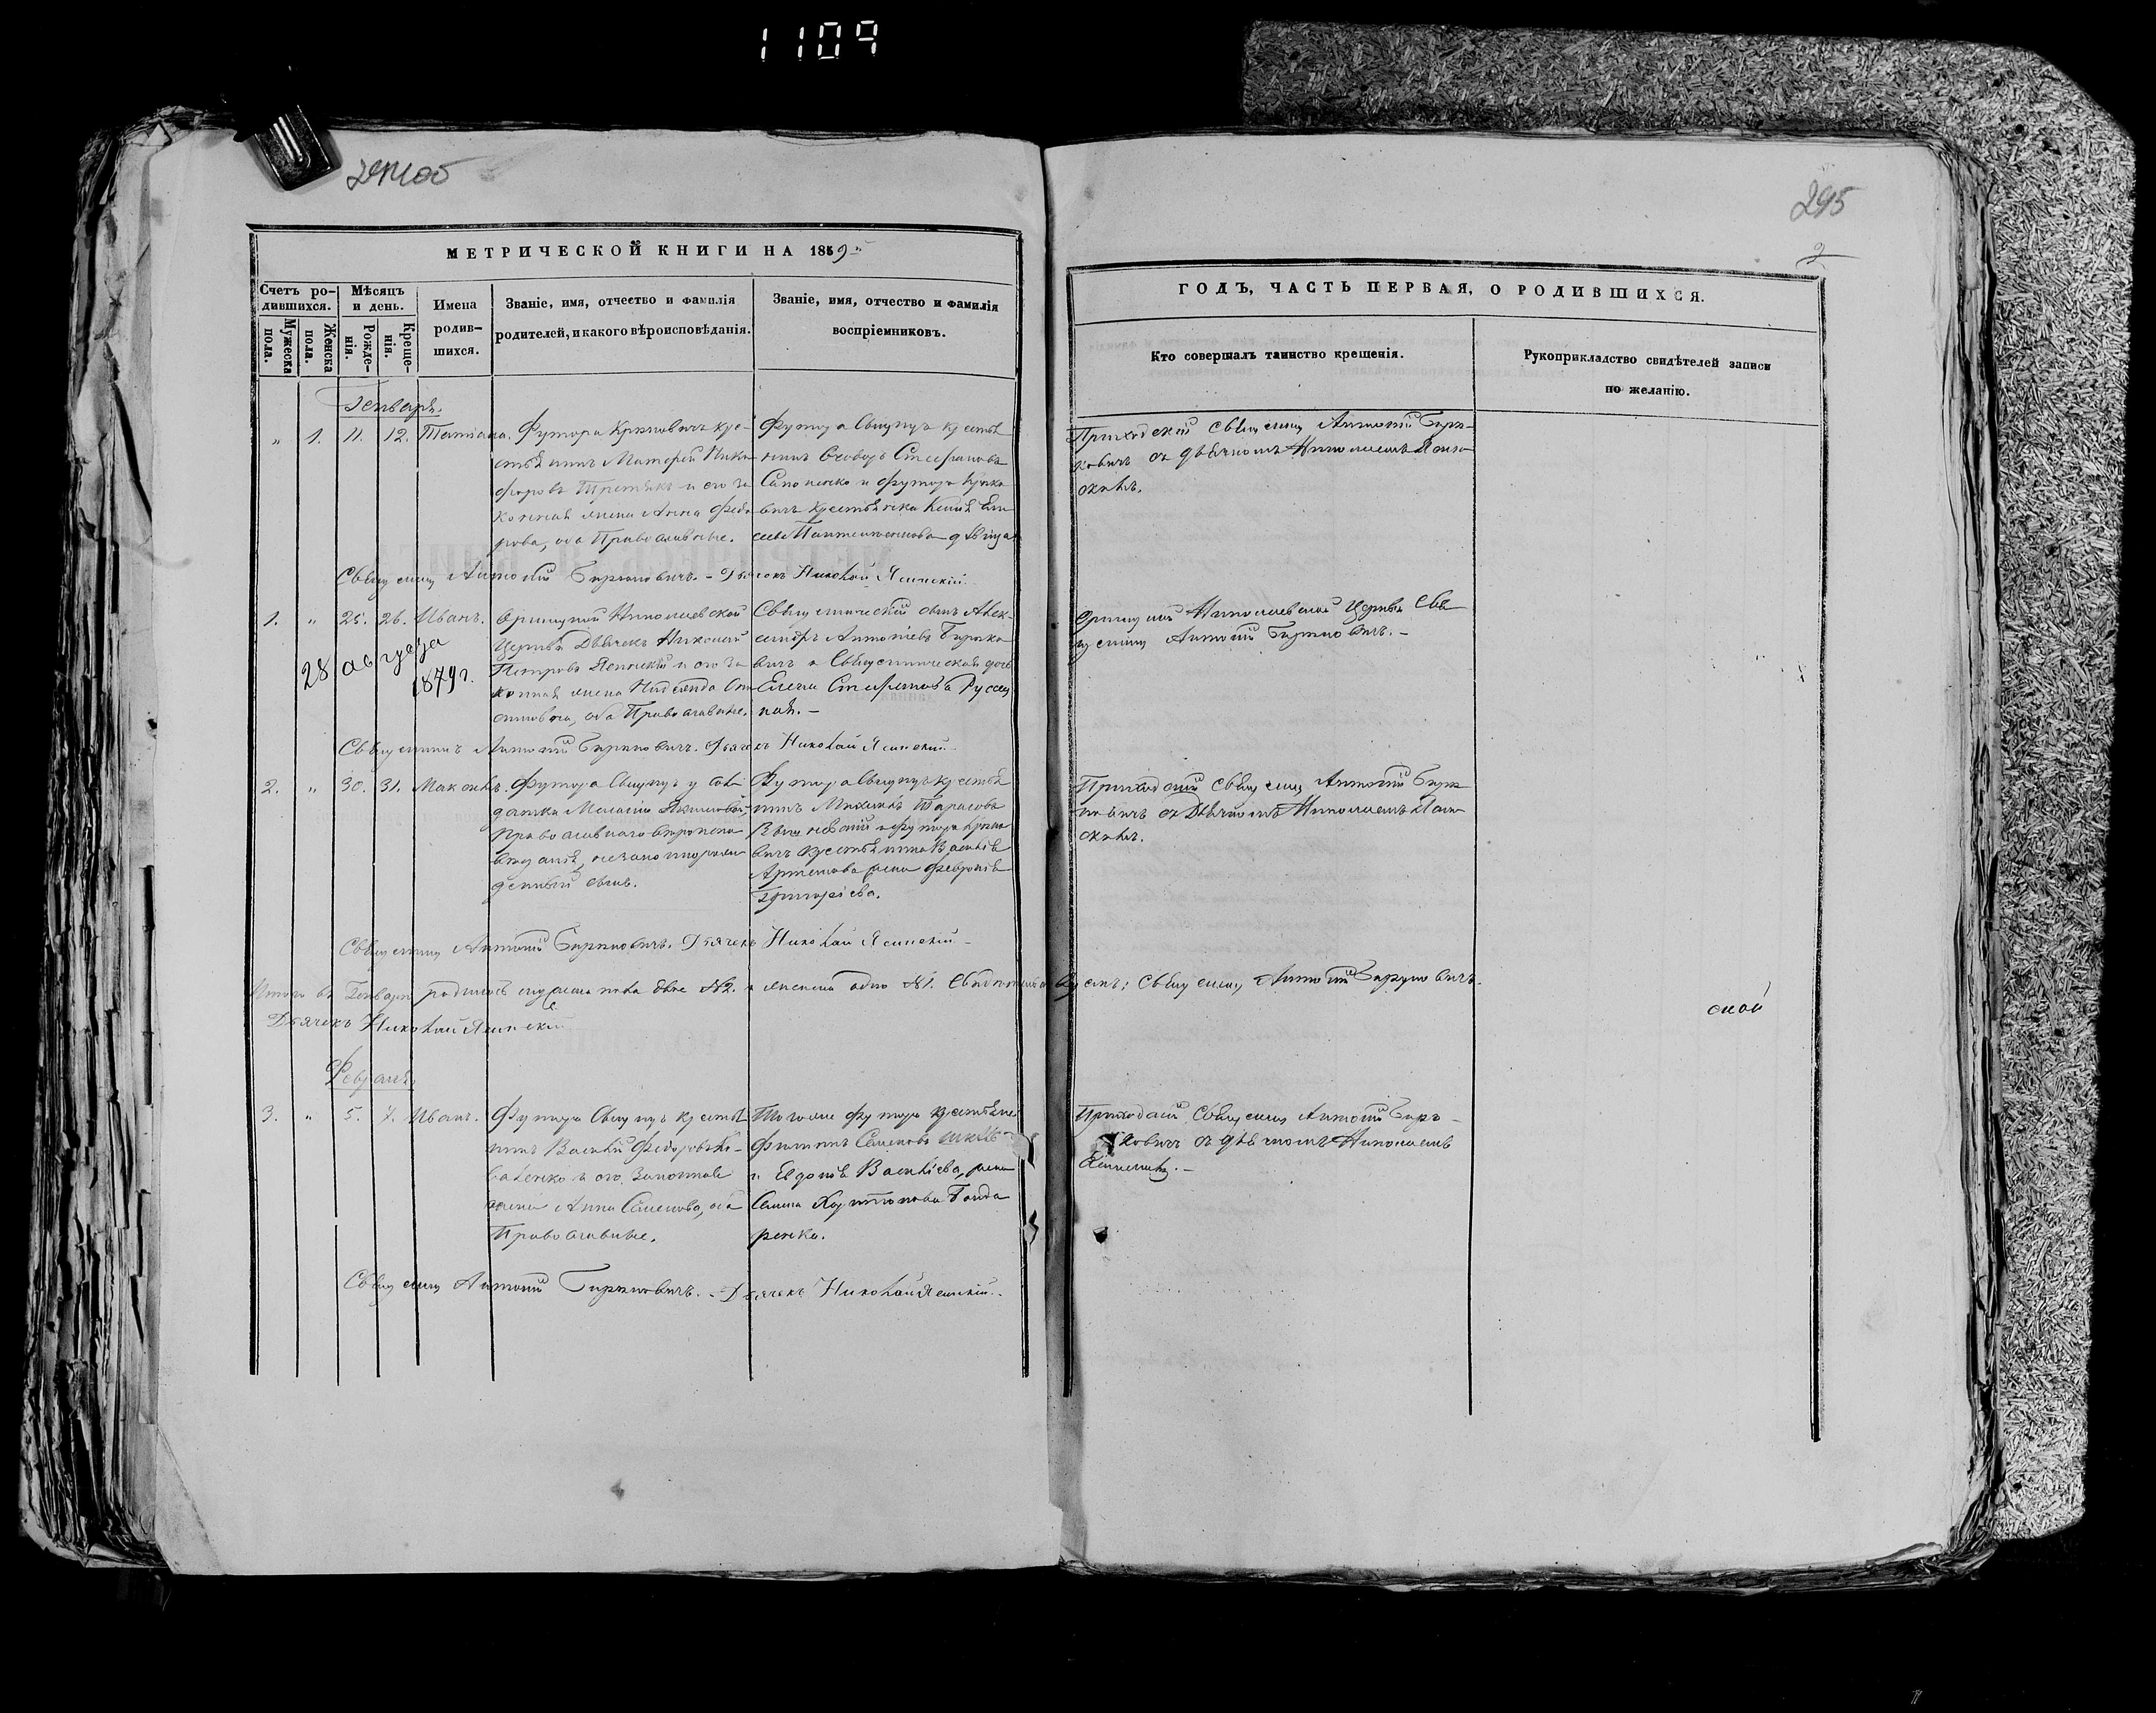 1109
294об
295
2
МЕТРИЧЕСКОЙ КНИГИ НА 1859й
ГОДЪ, ЧАСТЬ ПЕРВАЯ, О РОДИВШИХСЯ.
Счетъ ро-
дившихся.
Мужеска
пола.
Женска
пола.
Мѣсяцъ
и день.
Рожде-
нія.
Креще-
нія.
Имена
родив-
шихся.
Званіе, имя, отчество и фамилія
родителей, и какого вѣроисповѣданія.
Званіе, имя, отчество и фамилія
воспріемниковъ.
Кто совершалъ таинство крещенія.
Рукоприкладство свидѣтелей записи
по желанію.
Генварь.
" 1. 11. 12. Татіана.
Футора Крюковичъ кре-
стьянинъ Матфей Ники-
форовъ Третякъ и его за
конная жена Анна Федо
рова, оба Православные.
Футора Свищукъ крестья
нинъ Феодоръ Стефановъ
Сапоненко и футора Крюко
вичъ крестьянка Ксенія Ели
сеева Пантелеимонова дѣвица
Приходскій Священникъ Антоній Бирю-
ковичъ съ дьячкомъ Николаемъ Ясин
скимъ.
Священникъ Антоній Бирюковичъ. - Дьячокъ Николай Ясинскій
1. " 25. 26. Иванъ.
28 августа
1879 г.
Николаевской
Церкви Дьячекъ Николай
Петровъ Ясинскій и его за
конная жена Надежда
оба Православные.
Священническій сынъ Алек-
сандръ Антоніевъ Бирюко
вичъ и Священническая дочь
Елена Стефанова
ная. -
Николаевской Церкви Свя
щенникъ Антоній Бирюковичъ. -
Священникъ Антоній Бирюковичъ. Дьячекъ Николай Ясинскій
2. " 30. 31. Максимъ.
Футора Свищукъ у сол
датки Меланіи Якимовой,
Православнаго вѣроиспо
вѣданія, незаконнорож
денный сынъ.
Футора Свищукъ крестья
нинъ Михаилъ Тарасовъ
и футора Крюко
вичъ крестьянина Василія
Артемова жена Февронія
Григоріева.
Приходскій Священникъ Антоній Бирю
ковичъ съ Дьячкомъ Николаемъ Ясин
скимъ.
Священникъ Антоній Бирюковичъ. Дьячекъ Николай Ясинскій -
Итого въ Генварѣ родилось мужеска пола двое №2. и женска одно №1. Священникъ Антоній Бирюковичъ.
Дьячекъ Николай Ясинскій
ской
Февраль
3. " 5. 7. Иванъ.
Футора Свищукъ крестья
нинъ Василій Федоровъ Ко-
валенко и его законная
жена Анна Семенова, оба
Православные.
Того же футора крестьяне
Филиппъ Семеновъ
и Евдокія Васильева, жена
Харитонова Бонда
ренка.
Приходскій Священникъ Антоній Бирю-
ковичъ съ дьячкомъ Николаемъ
Ясинскимъ. -
Священникъ Антоній Бирюковичъ. - Дьячекъ Николай Ясинскій.